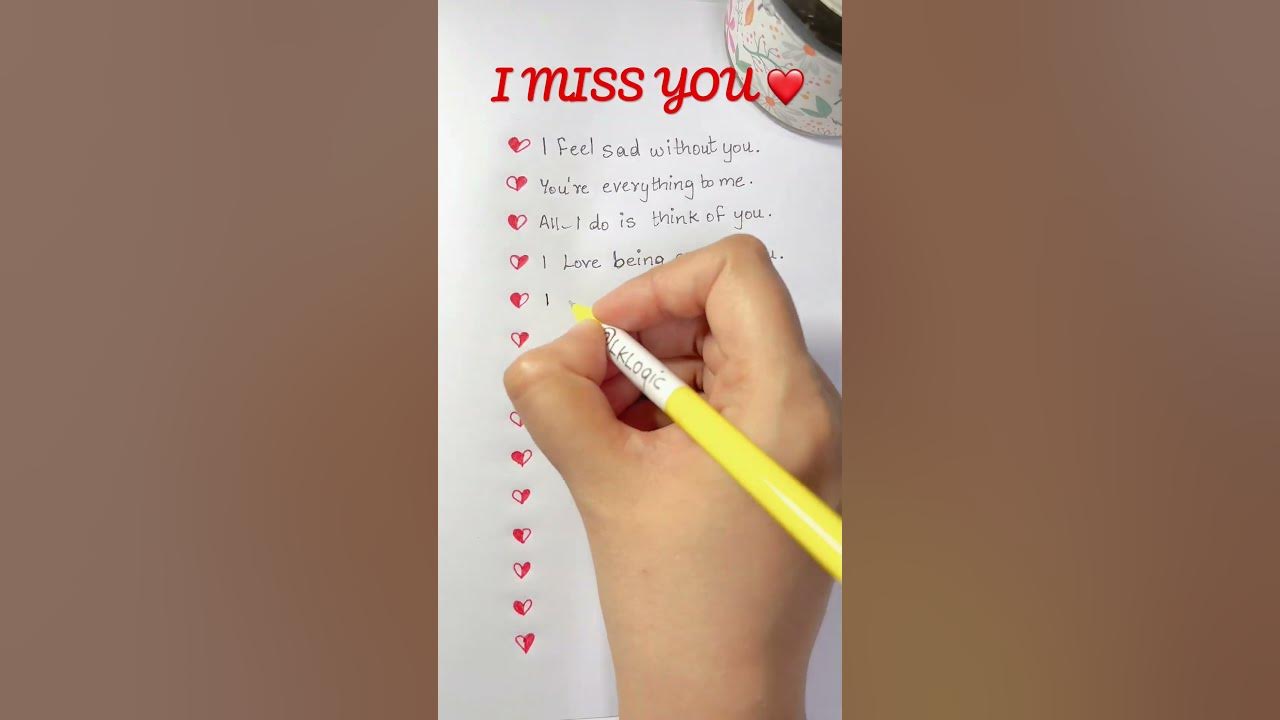 I MISS YOU ❤️
I feel sad without you.
You're everything to me.
All I do is think of you.
I Love being
I
@LKLogic